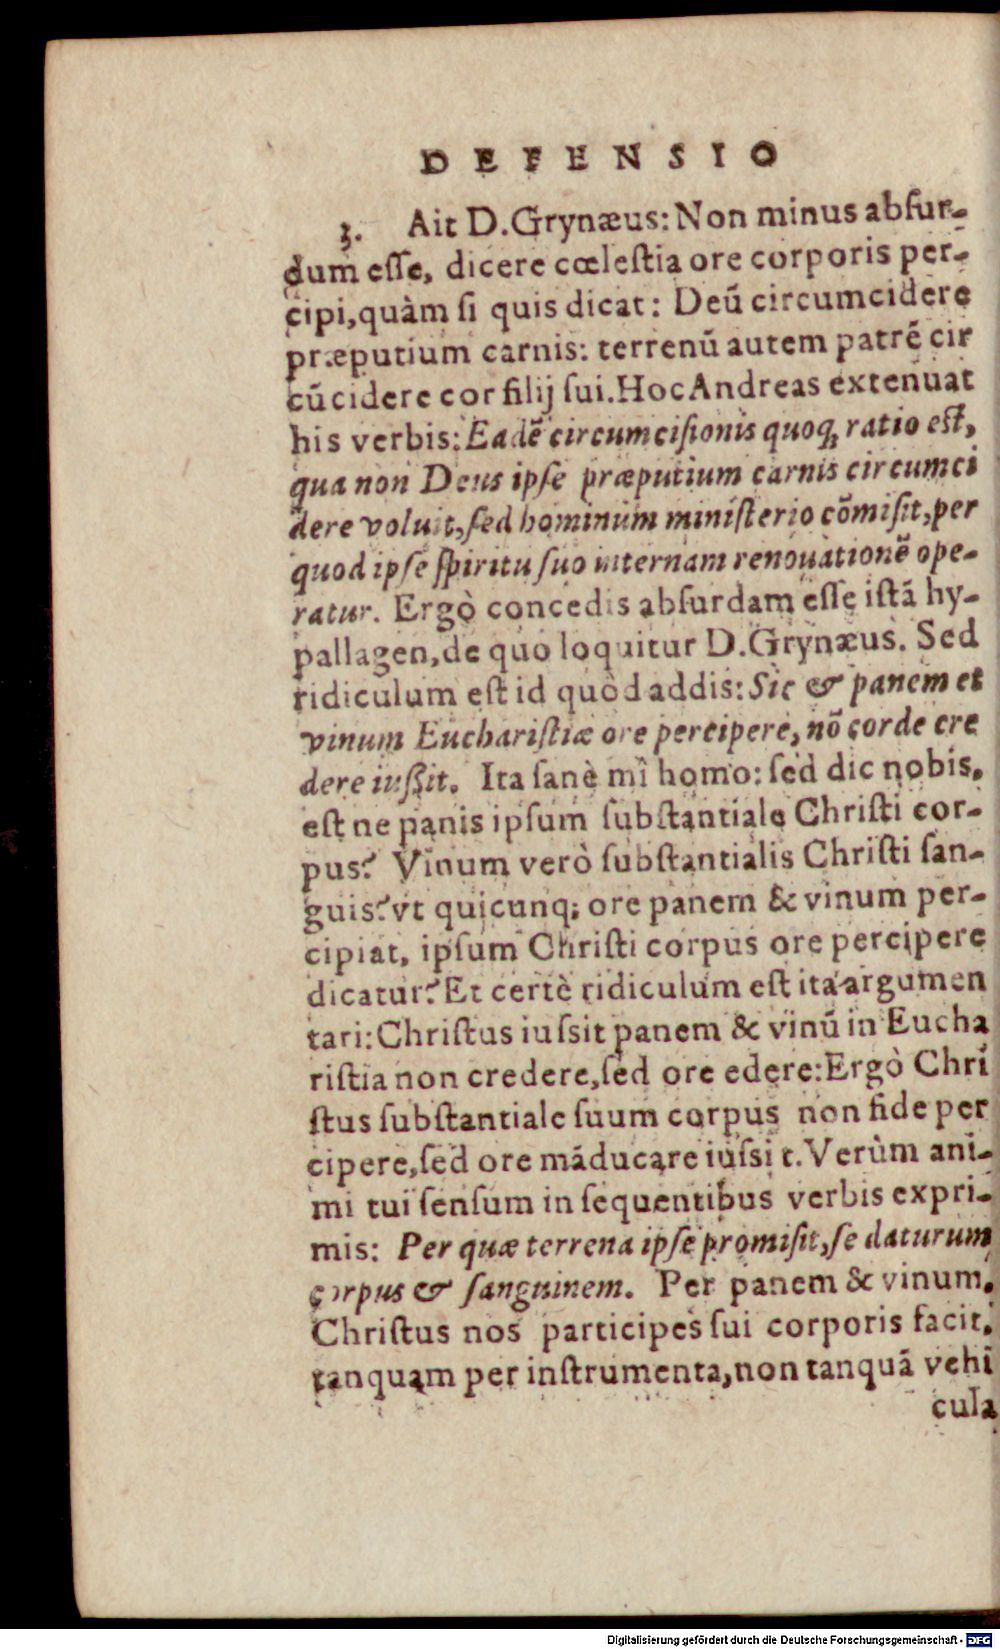 DEFENSIO
3. Ait D. Grynæus: Non minus absur-
dum esse, dicere cœlestia ore corporis per-
cipi, quàm si quis dicat: Deū circumcidere
præputium carnis: terrenū autem patrē cir
cūcidere cor filij sui. Hoc Andreas extenuat
his verbis: Eadē circumcisionis quoq; ratio est,
qua non Deus ipse præputium carnis circumci
dere voluit, sed hominum ministerio cōmisit, per
quod ipse spiritu suo internam renouationē ope-
ratur. Ergò concedis absurdam esse istā hy-
pallagen, de quo loquitur D. Grynæus. Sed
ridiculum est id quòd addis: Sic & panem et
vinum Eucharistiæ ore percipere, nō corde cre
dere iussit. Ita sanè mî homo: sed dic nobis,
est ne panis ipsum substantiale Christi cor-
pus? Vinum verò substantialis Christi san-
guis? vt quicunq; ore panem & vinum per-
cipiat, ipsum Christi corpus ore percipere
dicatur? Et certè ridiculum est ita argumen
tari: Christus iussit panem & vinū in Eucha
ristia non credere, sed ore edere: Ergò Chri
stus substantiale suum corpus non fide per
cipere, sed ore māducare iussit. Verùm ani-
mi tui sensum in sequentibus verbis expri-
mis: Per quæ terrena ipse promisit, se daturum
corpus & sanguinem. Per panem & vinum,
Christus nos participes sui corporis facit,
tanquam per instrumenta, non tanquā vehi
cula
Digitalisierung gefördert durch die Deutsche Forschungsgemeinschaft - DFG